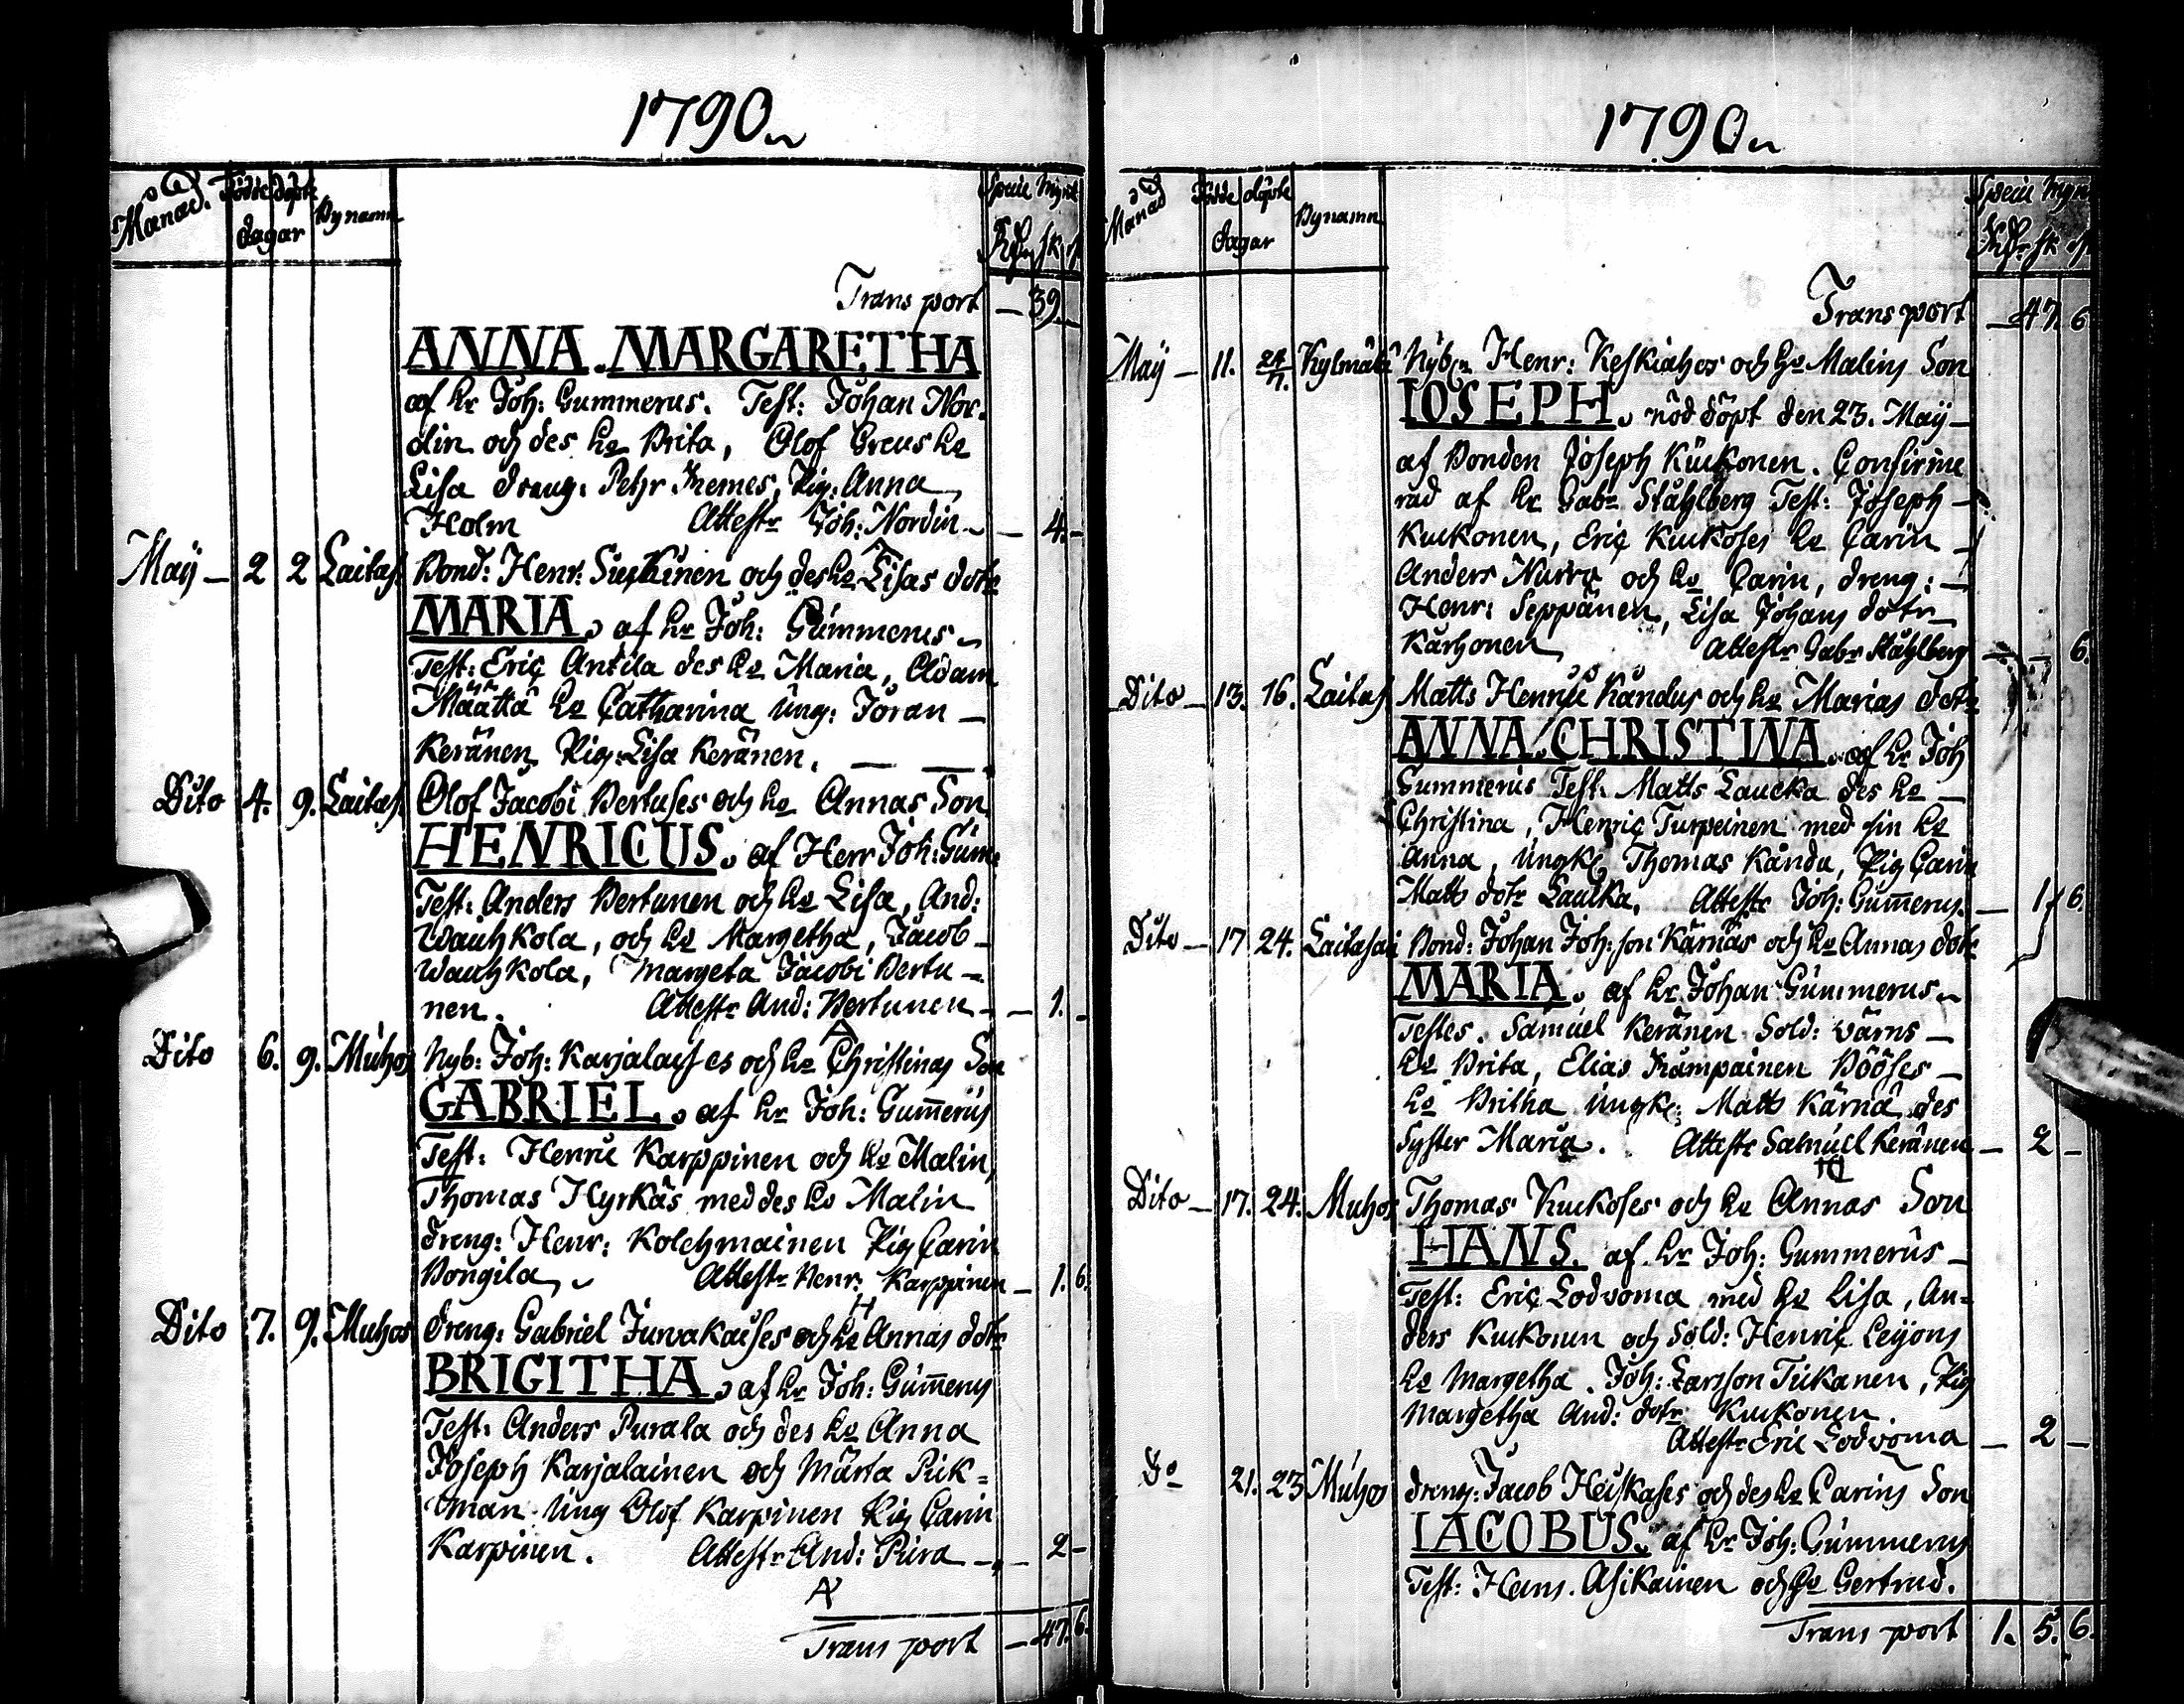 1790
Månad. Födde döpte dagar Bynamn Specie Mynt Rdr sk. rst
Transport — 39. —
ANNA MARGARETHA
af hr Joh: Gummerus. Test: Johan Nor-
din och des ho Brita, Olof Greus ho
Lisa dreng: Petr Remes, Pig: Anna
Holm Attestr Joh: Nordin — 4. —
Maÿ — 2 2 Laitas. Bond: Henr: och des ho Lisas dotr
MARIA af hr Joh: Gummerus
Test: Eric Antila des ho Maria, Adam
Määttä ho Catharina Ung: Jöran —
Keränen Pig: Lisa Keränen. — —
Dito 4. 9. Laitas. Olof Jacobi Bertuses och ho Annas Son
HENRICUS. af Herr Joh: Gum:
Test: Anders Bertunen och ho Lisa, And:
Wauhkola, och ho Margetha, Jacob
Wauhkola, Margeta Jacobi Bertu-
nen. Attestr And: Bertunen — 1. -
Dito 6. 9. Muhos Nyb: Joh: Karjalaises och ho Christinas Son
GABRIEL af hr Joh: Gum̄erus
Test: Henric Karppinen och ho Malin,
Thomas Hyrkäs med des ho Malin
dreng: Henr: Kolehmainen Pig Carin
Bongila Attestr Henr: Karppinen — 1. 6.
Dito 7. 9. Muhos dreng: Gabriel Juwakaises och ho Annas dotr
H
BRIGITHA af hr Joh: Gum̄erus
Test: Anders Purala och des ho Anna
Joseph Karjalainen och Märta Pik=
man Ung Olof Karpinen Pig Carin
Karpinen. Attestr And: Pura — 2 -
Transport — 47. 6.
1790
Månad Födde döpte dagar Bynamn Specie Mynt Rdr sk rst
Transport — 47. 6
Maÿ — 11. 24/7. Kylmälä Nyb: Henr: Keskiahos och ho Malins Son
IOSEPH, nöd döpt den 23. Maÿ —
af Bonden Joseph Kuckonen. Confirme
rad af hr Gabr Ståhlberg Test: Joseph —
Kuckonen, Eric Kuckoses ho Carin —
Anders Nurro och ho Carin, dreng: —
Henr: Seppänen, Lisa Johans dotr
Karhonen Attestr Gabr Ståhlberg — — 6.
Dito — 13. 16. Laitas. Matts Henrici Kandus och ho Marias dotr
ANNA CHRISTINA af hr Joh
Gummerus Test: Matts Laucka des ho —
Christina, Henric Turpeinen med sin ho
Anna, Ungk: Thomas Kandu, Pig Carin
Matts dotr Laucka. Attestr Joh: Gum̄erus. — 1 6.
Dito — 17 24. Laitasari Bond: Johan Joh:son Kärnäs och ho Annas dotr
MARIA. af hr Johan Gummerus
Testes. Samuel Keränen Sold: Värns —
ho Brita, Elias Kämpainen Bööses —
ho Britha Ungk: Matts Kärnä des
Syster Maria. Attestr Samuel Keränen — 2 —
Dito — 17. 24. Muhos Thomas Kuckoses och ho Annas Son
HANS. af hr Joh: Gummerus —
Test: Eric Lodvoma med ho Lisa, An-
ders Kuckonen och Sold: Henric Leijons
ho Margetha. Joh: Larsson Tikanen, Pig
Margetha And: dotr Kuckonen.
Attestr Eric Lodvoma — 2 —
Do 21. 23 Muhos dreng: Jacob Heiskases och des ho Carins Son
IACOBUS. af hr Joh: Gummerus
Test: Hans. Asikainen och ho Gertrud.
Transport 1. 5. 6.